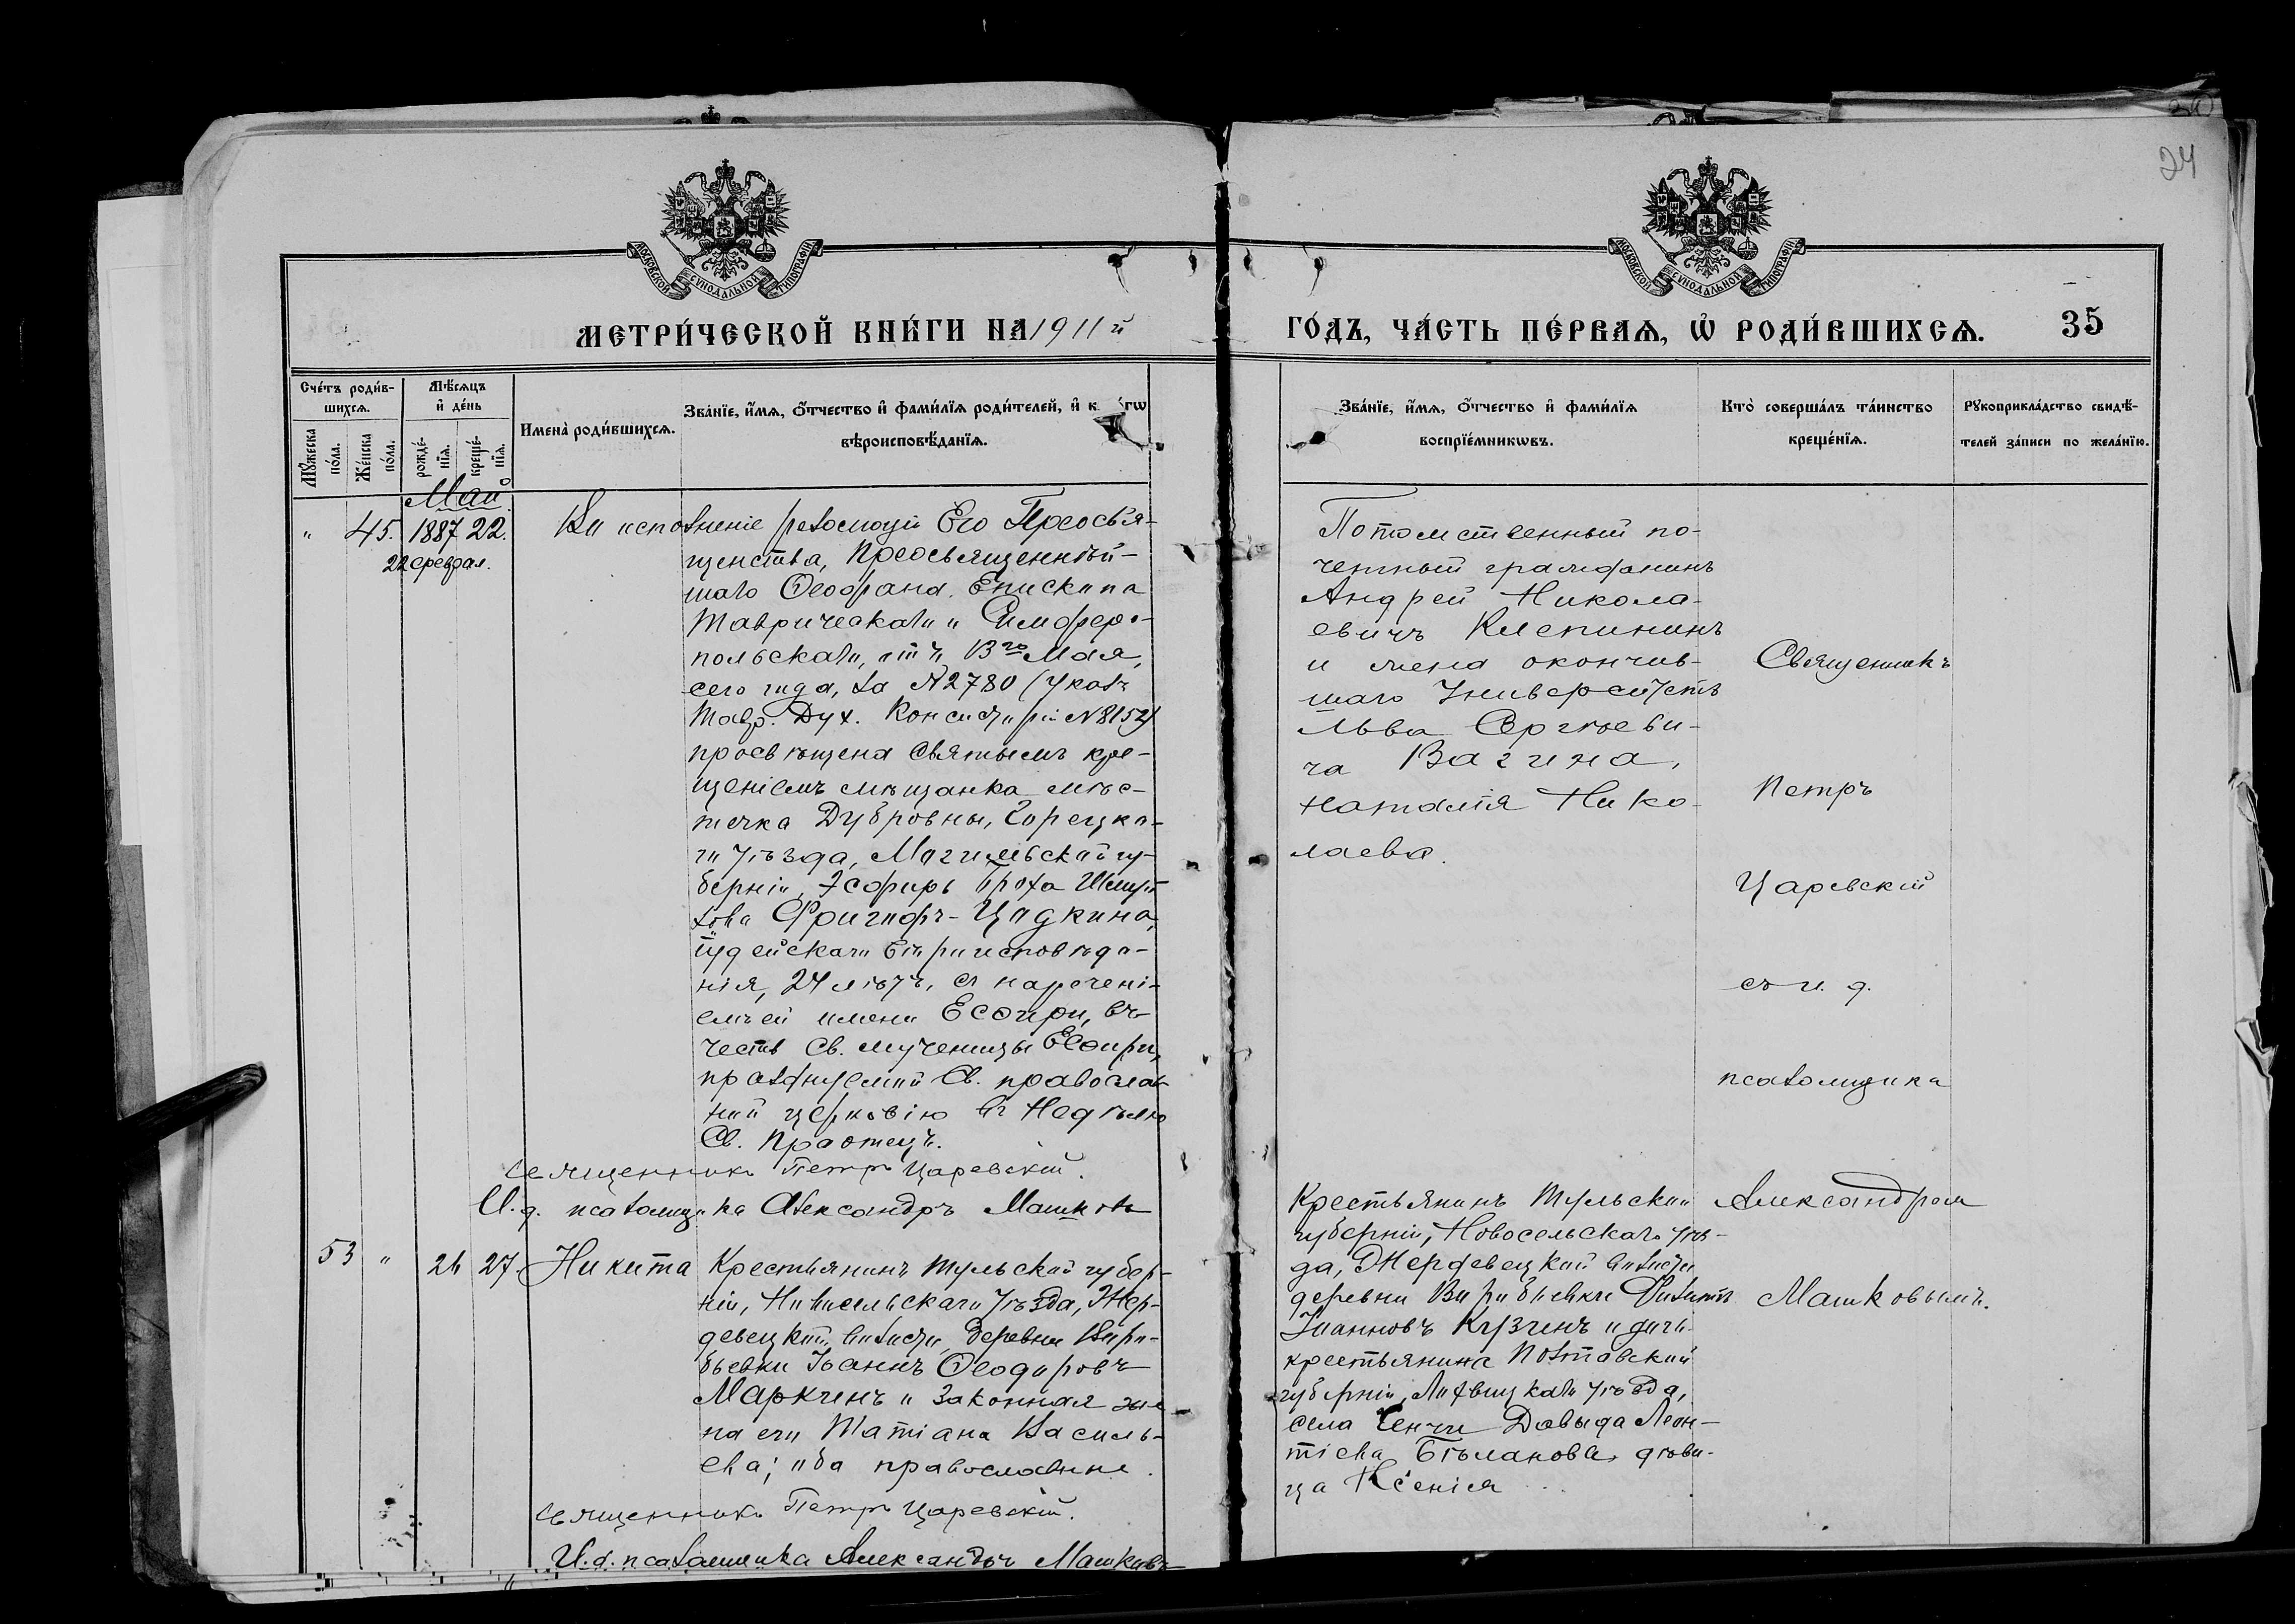 24
МОСКОВСКОЙ СѴНОДАЛЬНОЙ ТИПОГРАФІИ
МОСКОВСКОЙ СѴНОДАЛЬНОЙ ТИПОГРАФІИ
МЕТРИ́ЧЕСКОЙ КНИ́ГИ НА 1911 й
ГО́ДЪ, ЧА́СТЬ ПЕ́РВАѦ, Ѽ РОДИ́ВШИХСѦ. 35
Сче́тъ роди́в-
шихсѧ.
Мꙋ́жеска по́ла.
Же́нска по́ла.
Мѣ́сѧцъ
и҆ де́нь
рожде́-
нїѧ.
креще́-
нїѧ.
Имена̀ роди́вшихсѧ.
Зва́нїе, и҆́мѧ, ѻ҆́тчество и҆ фами́лїѧ роди́телей, и҆ к гѡ
вѣроисповѣ́данїѧ.
Зва́нїе, и҆́мѧ, ѻ҆́тчество и҆ фами́лїѧ
воспрїе́мникѡвъ.
Кто̀ соверша́лъ та́инство
креще́нїѧ.
Рꙋкоприкла́дство свидѣ́-
телей за́писи по жела́нїю.
Май
" 45. 1887 22.
22 феврал.
Во исполненіе резолюціи Его Преосвя-
щенства, Преосвященнѣй-
шаго Ѳеофана, Епископа
Таврическаго и Симферо-
польскаго, отъ 13го Мая,
сего года, за № 2780 (Указъ
Тавр. Дух. Консисторіи № 8152)
просвѣщена Святымъ кре-
щеніемъ мѣщанка мѣс-
течка Дубровны, Горецка-
го уѣзда, Могилевской гу-
берніи, Эсфирь Броха
зова Цодкина,
іудейскаго вѣроисповѣда-
нія, 24 лѣтъ, съ нареченi-
емъ ей имени Есѳири, въ
честь Св. мученицы Есѳири,
празднуемой Св. православ-
ной церковію въ Недѣлю
Св. Праотецъ.
Священникъ Петръ Царевскій.
И. д. псаломщика Александръ Машковъ
Потомственный по-
четный гражданинъ
Андрей Никола-
евичъ Клепининъ
и жена окончив-
шаго Университетъ
Льва Сергѣеви-
ча Вагина,
Наталія Нико-
лаева.
Священникъ
Петръ
Царевскій
съ и. д.
псаломщика
Александром
Машковымъ.
53 " 26 27. Никита
Крестьянинъ Тульской губер-
ніи, Новосельскаго уѣзда, Жер-
девецкой волости, деревни Воро-
бьевки Іоаннъ Ѳеодоровъ
Маркинъ и законная же-
на его Татіана Василь-
ева; оба православные.
Священникъ Петръ Царевскій.
И. д. псаломщика Александръ Машковъ
Крестьянинъ Тульской
губерніи, Новосельскаго уѣз-
да, Жердевецкой волости
деревни Воробьевки
Іоанновъ Кузинъ и дочь
крестьянина Полтавской
губерніи, Лохвицкаго уѣзда,
села Сенчи Давыда Леон-
тіева Бѣланова, дѣви-
ца Ксенія